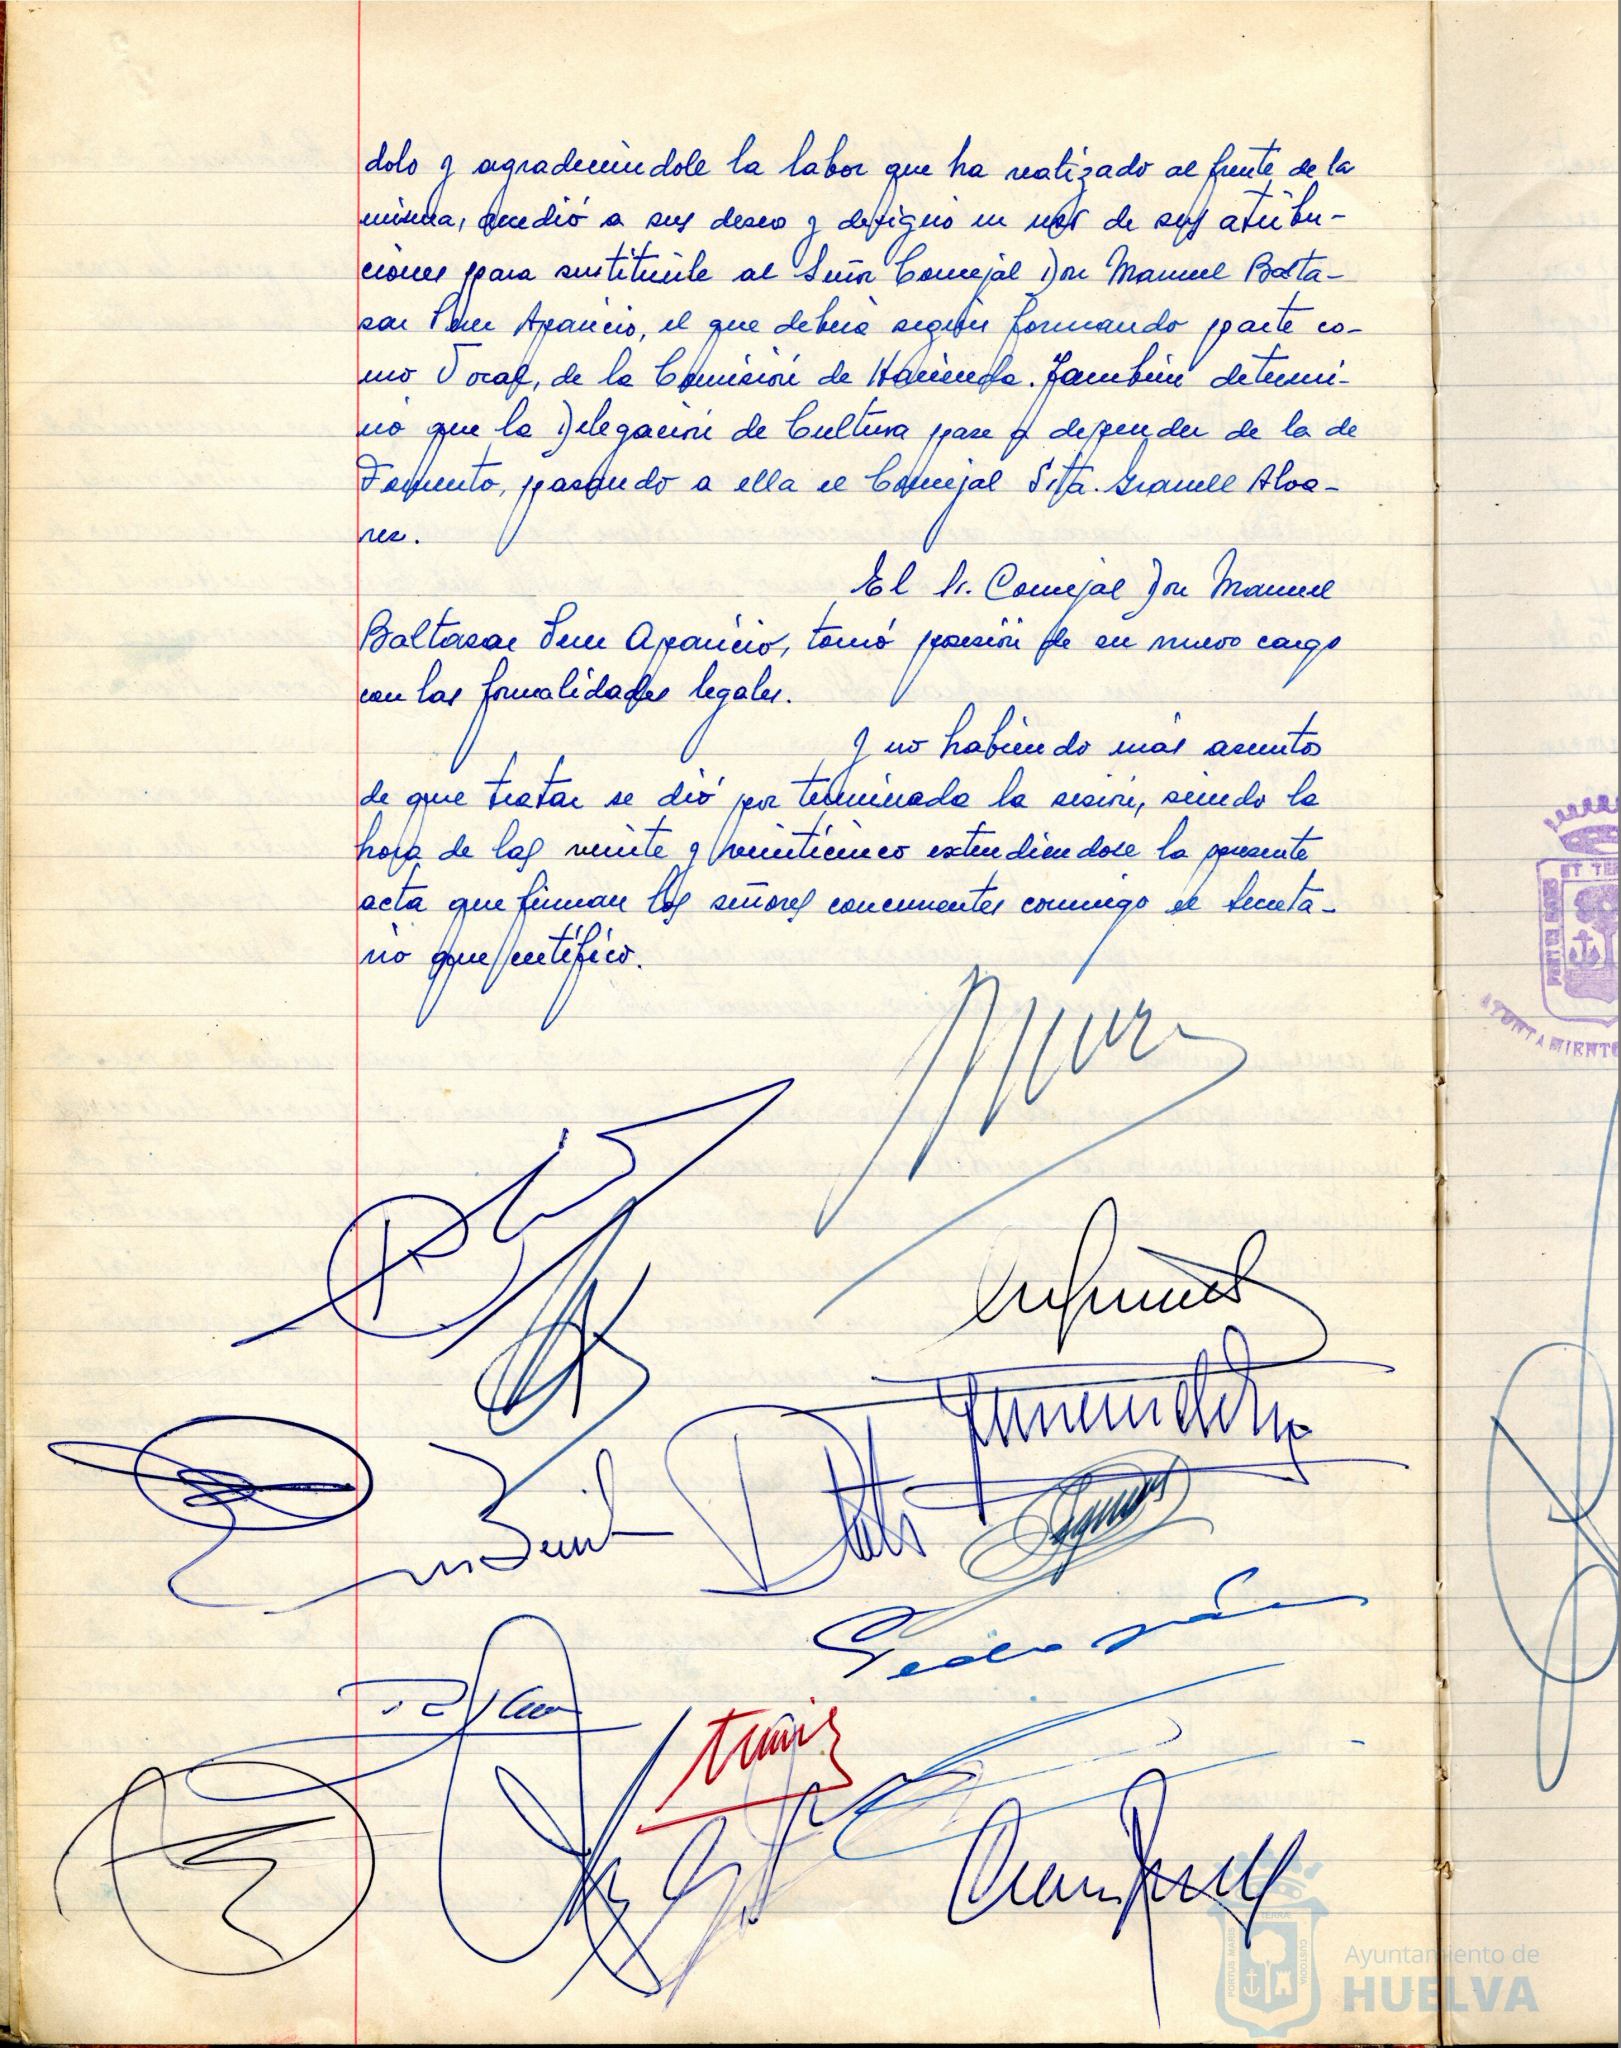 dolo y agradeciéndole la labor que ha realizado al frente de la
misma, accedió a sus deseo y designó en uso de sus atribu-
ciones para sustituirle al Señor Concejal Don Manuel Balta-
sar Pern Aparicio, el que deberá seguir formando parte co-
mo Vocal, de la Comisión de Hacienda. También determi-
nó que la Delegación de Cultura pase a depender de la de
Fomento, pasando a ella el Concejal Srta. Granell Alva-
rez.
El Sr. Concejal Don Manuel
Baltasar Pern Aparicio, tomó posesión de su nuevo cargo
con las formalidades legales.
Y no habiendo más asuntos
de que tratar se dió por terminada la sesión, siendo la
hora de las veinte y veinticinco extendiendose la presente
acta que firman los señores concurrentes conmigo el Secreta-
rio que certifico.
PORTUS MARIS
ET TE
AYUNTAMIENTO
PORTUS MARIS
TERRÆ
CUSTODIA
Ayuntamiento de
HUELVA